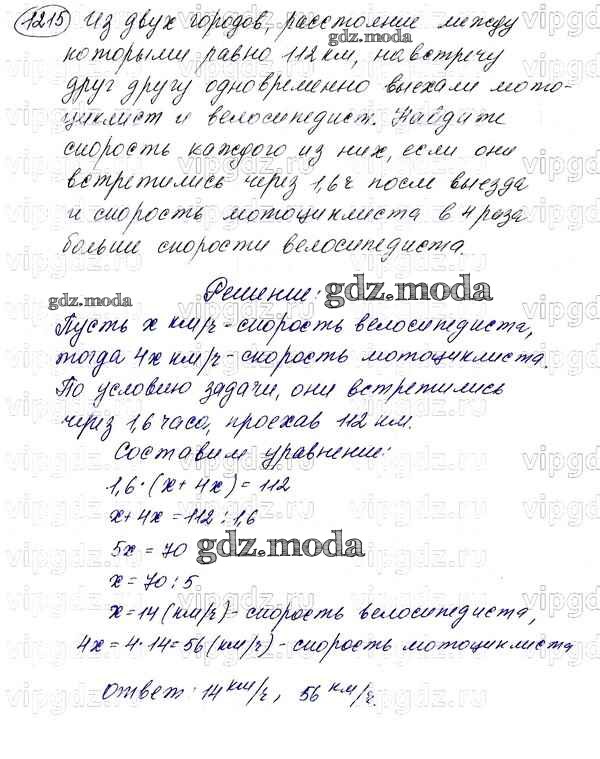 1215 Из двух городов, расстояние между
которыми равно 112 км, навстречу
друг другу одновременно выехали мото-
циклист и велосипедист. Найдите
скорость каждого из них, если они
встретились через 1,6 ч после выезда
и скорость мотоциклиста в 4 раза
больше скорости велосипедиста.
Решение:
gdz.moda
gdz.moda
Пусть x км/ч - скорость велосипедиста,
тогда 4x км/ч - скорость мотоциклиста.
По условию задачи, они встретились
через 1,6 часа, проехав 112 км.
Составим уравнение:
1,6·(x+4x)=112
x+4x=112:1,6
5x=70
gdz.moda
x=70:5
x=14(км/ч) - скорость велосипедиста,
4x=4·14=56(км/ч) - скорость мотоциклиста
Ответ: 14 км/ч, 56 км/ч.